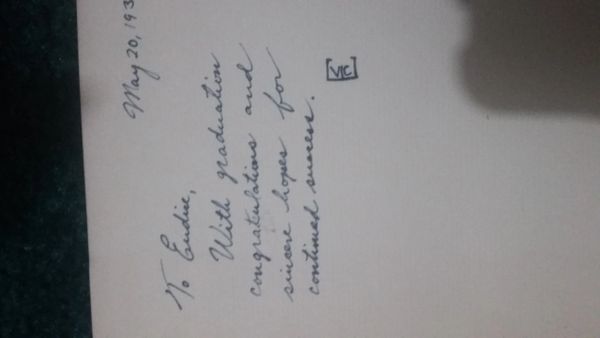 May 20, 193
To Eudice,
With graduation
congratulations and
sincere hopes for
continued success.